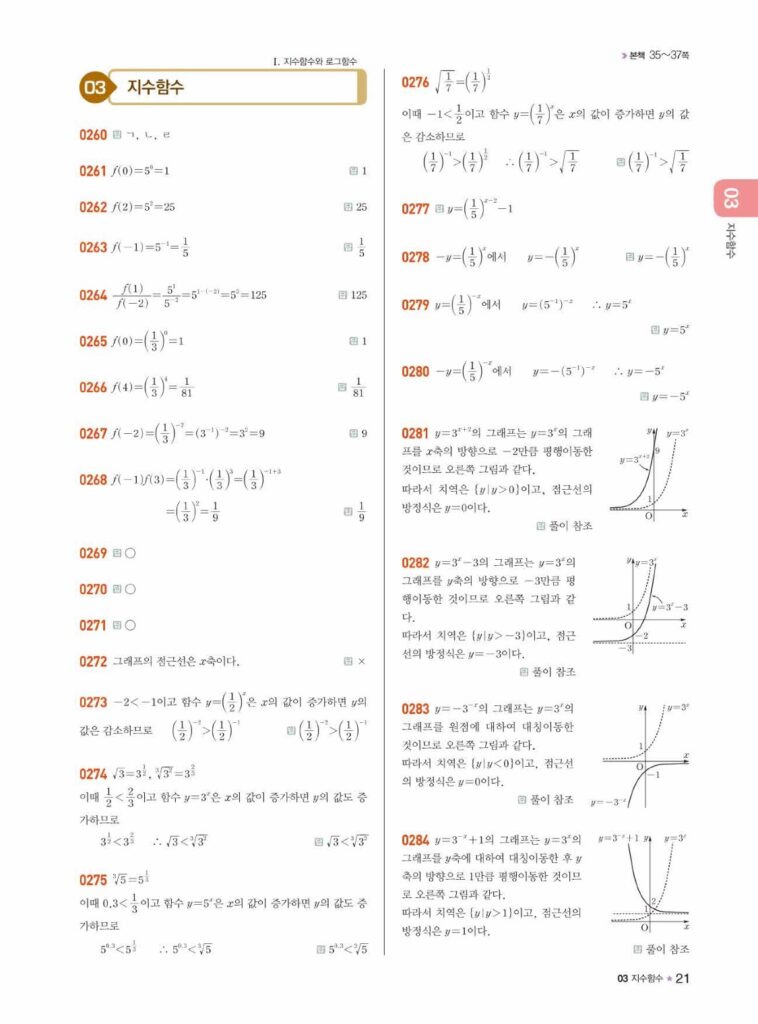 Ⅰ. 지수함수와 로그함수
03 지수함수
0260 답 ㄱ, ㄴ, ㄹ
0261 f(0)=5⁰=1 답 1
0262 f(2)=5²=25 답 25
0263 f(-1)=5⁻¹=1/5 답 1/5
0264 f(1)/f(-2)=5¹/5⁻²=5¹⁻⁽⁻²⁾=5³=125 답 125
0265 f(0)=(1/3)⁰=1 답 1
0266 f(4)=(1/3)⁴=1/81 답 1/81
0267 f(-2)=(1/3)⁻²=(3⁻¹)⁻²=3²=9 답 9
0268 f(-1)f(3)=(1/3)⁻¹·(1/3)³=(1/3)⁻¹⁺³
=(1/3)²=1/9 답 1/9
0269 답 ○
0270 답 ○
0271 답 ○
0272 그래프의 점근선은 x축이다. 답 ×
0273 -2<-1이고 함수 y=(1/2)ˣ은 x의 값이 증가하면 y의
값은 감소하므로 (1/2)⁻²>(1/2)⁻¹ 답 (1/2)⁻²>(1/2)⁻¹
0274 √3=3^(1/2), ³√3²=3^(2/3)
이때 1/2<2/3이고 함수 y=3ˣ은 x의 값이 증가하면 y의 값도 증
가하므로
3^(1/2)<3^(2/3) ∴ √3<³√3² 답 √3<³√3²
0275 ³√5=5^(1/3)
이때 0.3<1/3이고 함수 y=5ˣ은 x의 값이 증가하면 y의 값도 증
가하므로
5^0.3<5^(1/3) ∴ 5^0.3<³√5 답 5^0.3<³√5
≫ 본책 35~37쪽
0276 √(1/7)=(1/7)^(1/2)
이때 -1<1/2이고 함수 y=(1/7)ˣ은 x의 값이 증가하면 y의 값
은 감소하므로
(1/7)⁻¹>(1/7)^(1/2) ∴ (1/7)⁻¹>√(1/7) 답 (1/7)⁻¹>√(1/7)
0277 답 y=(1/5)ˣ⁻²-1
0278 -y=(1/5)ˣ에서 y=-(1/5)ˣ 답 y=-(1/5)ˣ
0279 y=(1/5)⁻ˣ에서 y=(5⁻¹)⁻ˣ ∴ y=5ˣ
답 y=5ˣ
0280 -y=(1/5)⁻ˣ에서 y=-(5⁻¹)⁻ˣ ∴ y=-5ˣ
답 y=-5ˣ
0281 y=3ˣ⁺²의 그래프는 y=3ˣ의 그래
프를 x축의 방향으로 -2만큼 평행이동한
것이므로 오른쪽 그림과 같다.
따라서 치역은 {y|y>0}이고, 점근선의
방정식은 y=0이다.
답 풀이 참조
y
y=3ˣ
9
y=3ˣ⁺²
1
O
x
0282 y=3ˣ-3의 그래프는 y=3ˣ의
그래프를 y축의 방향으로 -3만큼 평
행이동한 것이므로 오른쪽 그림과 같
다.
따라서 치역은 {y|y>-3}이고, 점근
선의 방정식은 y=-3이다.
답 풀이 참조
y
y=3ˣ
1
y=3ˣ-3
O
x
-2
-3
0283 y=-3⁻ˣ의 그래프는 y=3ˣ의
그래프를 원점에 대하여 대칭이동한
것이므로 오른쪽 그림과 같다.
따라서 치역은 {y|y<0}이고, 점근선
의 방정식은 y=0이다.
답 풀이 참조
y
y=3ˣ
1
x
O
-1
y=-3⁻ˣ
0284 y=3⁻ˣ+1의 그래프는 y=3ˣ의
그래프를 y축에 대하여 대칭이동한 후 y
축의 방향으로 1만큼 평행이동한 것이므
로 오른쪽 그림과 같다.
따라서 치역은 {y|y>1}이고, 점근선의
방정식은 y=1이다.
답 풀이 참조
y=3⁻ˣ+1
y
y=3ˣ
2
1
O
x
03
지수함수
03 지수함수 ★ 21